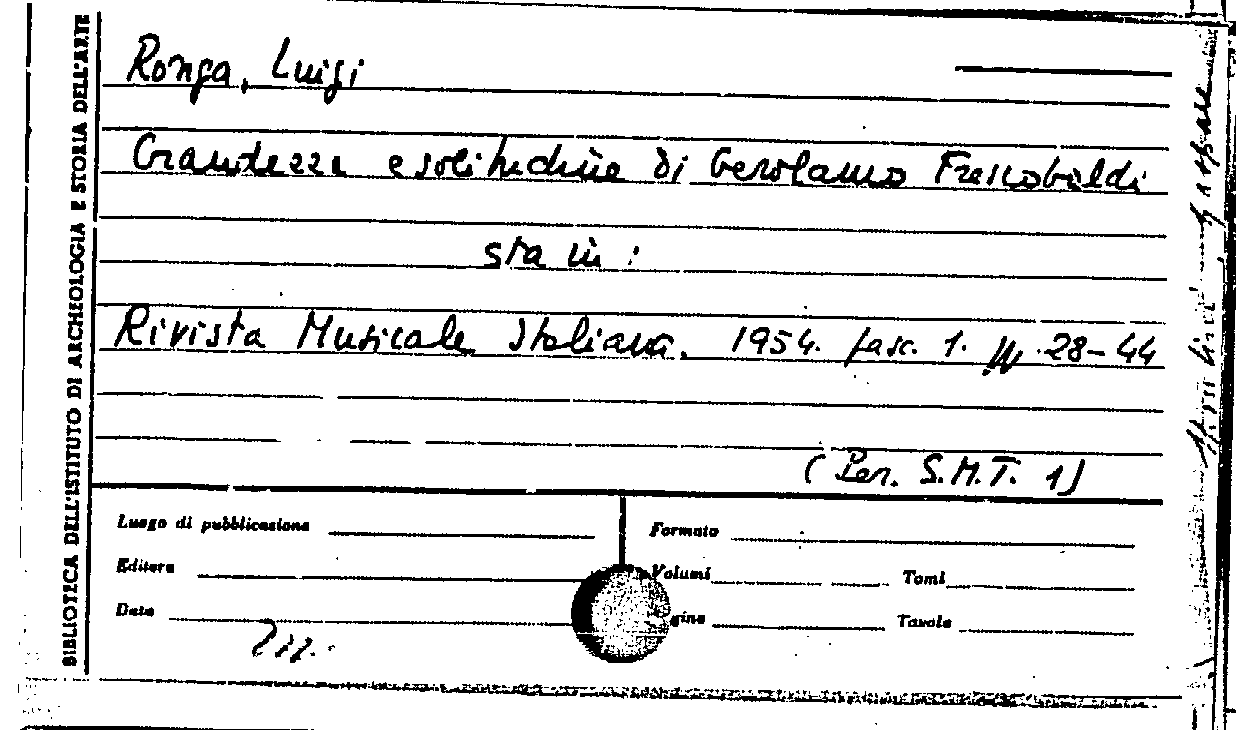 BIBLIOTECA DELL'ISTITUTO DI ARCHEOLOGIA E STORIA DELL'ARTE
Ronga, Luigi
Grandezza e solitudine di Gerolamo Frescobaldi
sta in:
Rivista Musicale Italiana. 1954. fasc. 1. pp. 28-44
(Per. S.M.T. 1)
Luogo di pubblicazione
Formato
Editore
Volumi
Tomi
Data
Tavole